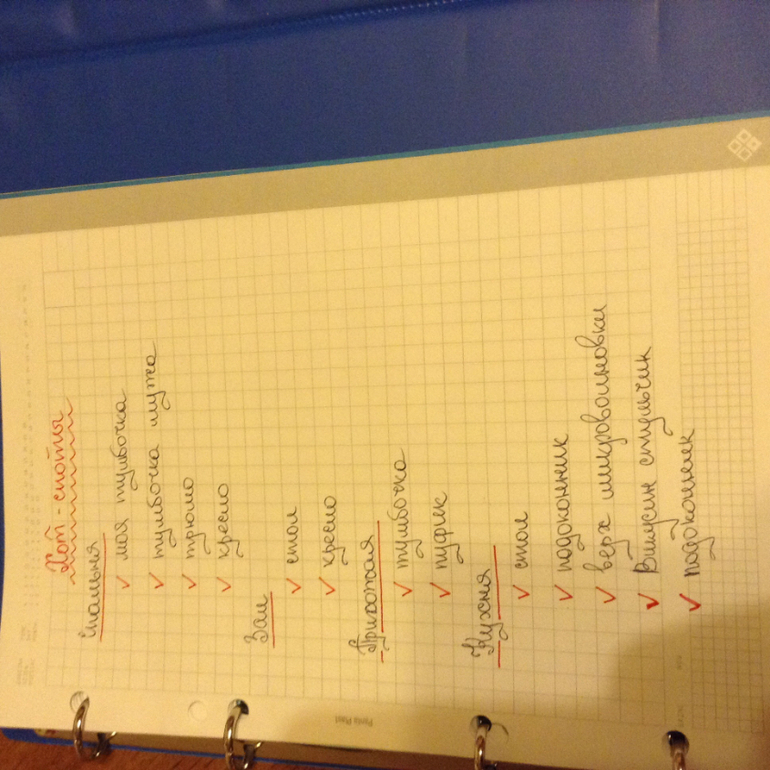 Хот-споты
Спальня
✓ моя тумбочка
✓ тумбочка мужа
✓ трюмо
✓ кресло
Зал
✓ стол
✓ кресло
Прихожая
✓ тумбочка
✓ пуфик
Кухня
✓ стол
✓ подоконник
✓ верх микроволновки
✓ стульчик
✓ подоконник